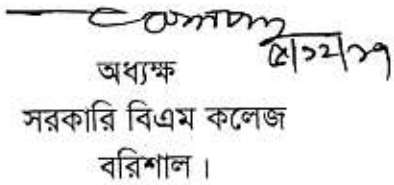 ৫/১২/১৭
অধ্যক্ষ
সরকারি বিএম কলেজ
বরিশাল।